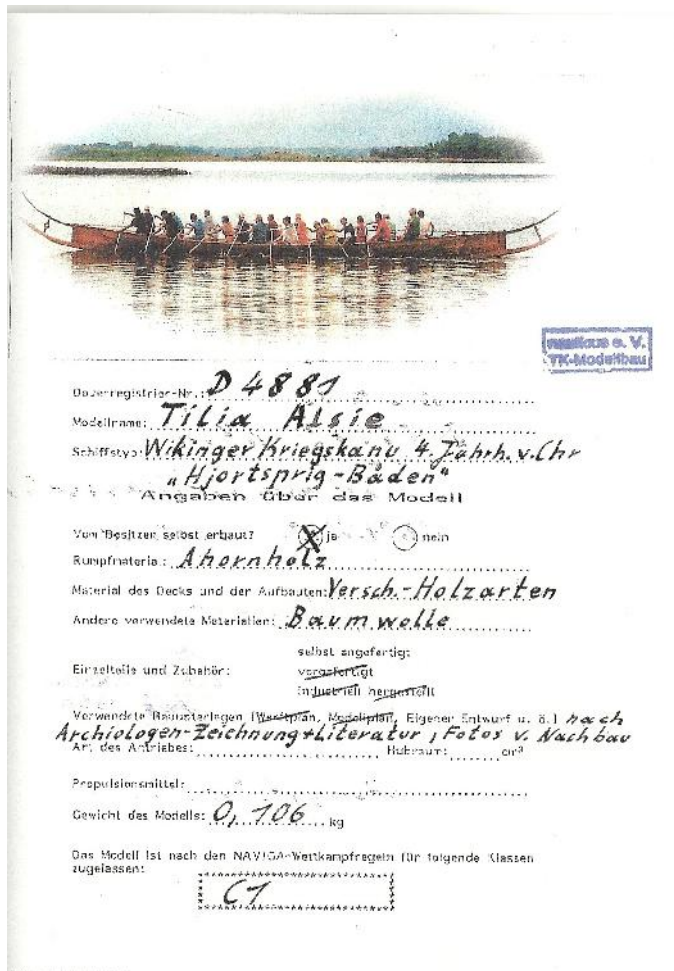 nautikus e. V.
TK-Modellbau
Dauerregistrier-Nr.: D 4881
Modellname: Tilia Alsie
Schiffstyp: Wikinger Kriegskanu 4. Jahrh. v. Chr
„Hjortsprig-Båden"
Angaben über das Modell
Vom Besitzer selbst erbaut? ja nein
Rumpfmaterial: Ahornholz
Material des Decks und der Aufbauten: Versch.-Holzarten
Andere verwendete Materialien: Baumwolle
selbst angefertigt
Einzelteile und Zubehör: vorgefertigt
industriell hergestellt
Verwendete Bauunterlagen (Werftplan, Modellplan, Eigener Entwurf u. ä.) nach
Archiologen-Zeichnung+Literatur, Fotos v. Nachbau
Art des Antriebes: Hubraum: cm³
Propulsionsmittel:
Gewicht des Modells: 0,106 kg
Das Modell ist nach den NAVIGA-Wettkampfregeln für folgende Klassen
zugelassen:
C1